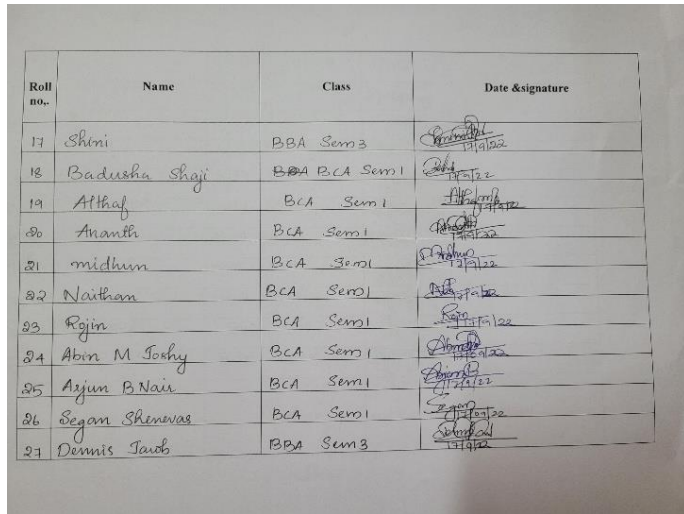 Roll no,. Name Class Date &signature
17 Shini BBA Sem 3 17/9/22
18 Badusha Shaji BBA BCA Sem 1 17/9/22
19 Althaf BCA Sem 1 17/9/22
20 Ananth BCA Sem 1 17/9/22
21 midhun BCA Sem 1 17/9/22
22 Naithan BCA Sem 1 17/9/22
23 Rojin BCA Sem 1 Rojin 17/9/22
24 Abin M Joshy BCA Sem 1 17/09/22
25 Arjun B Nair BCA Sem 1 17/9/22
26 Segan Shenevas BCA Sem 1 Segan 17/09/22
27 Dennis Jacob BBA Sem 3 17/9/22